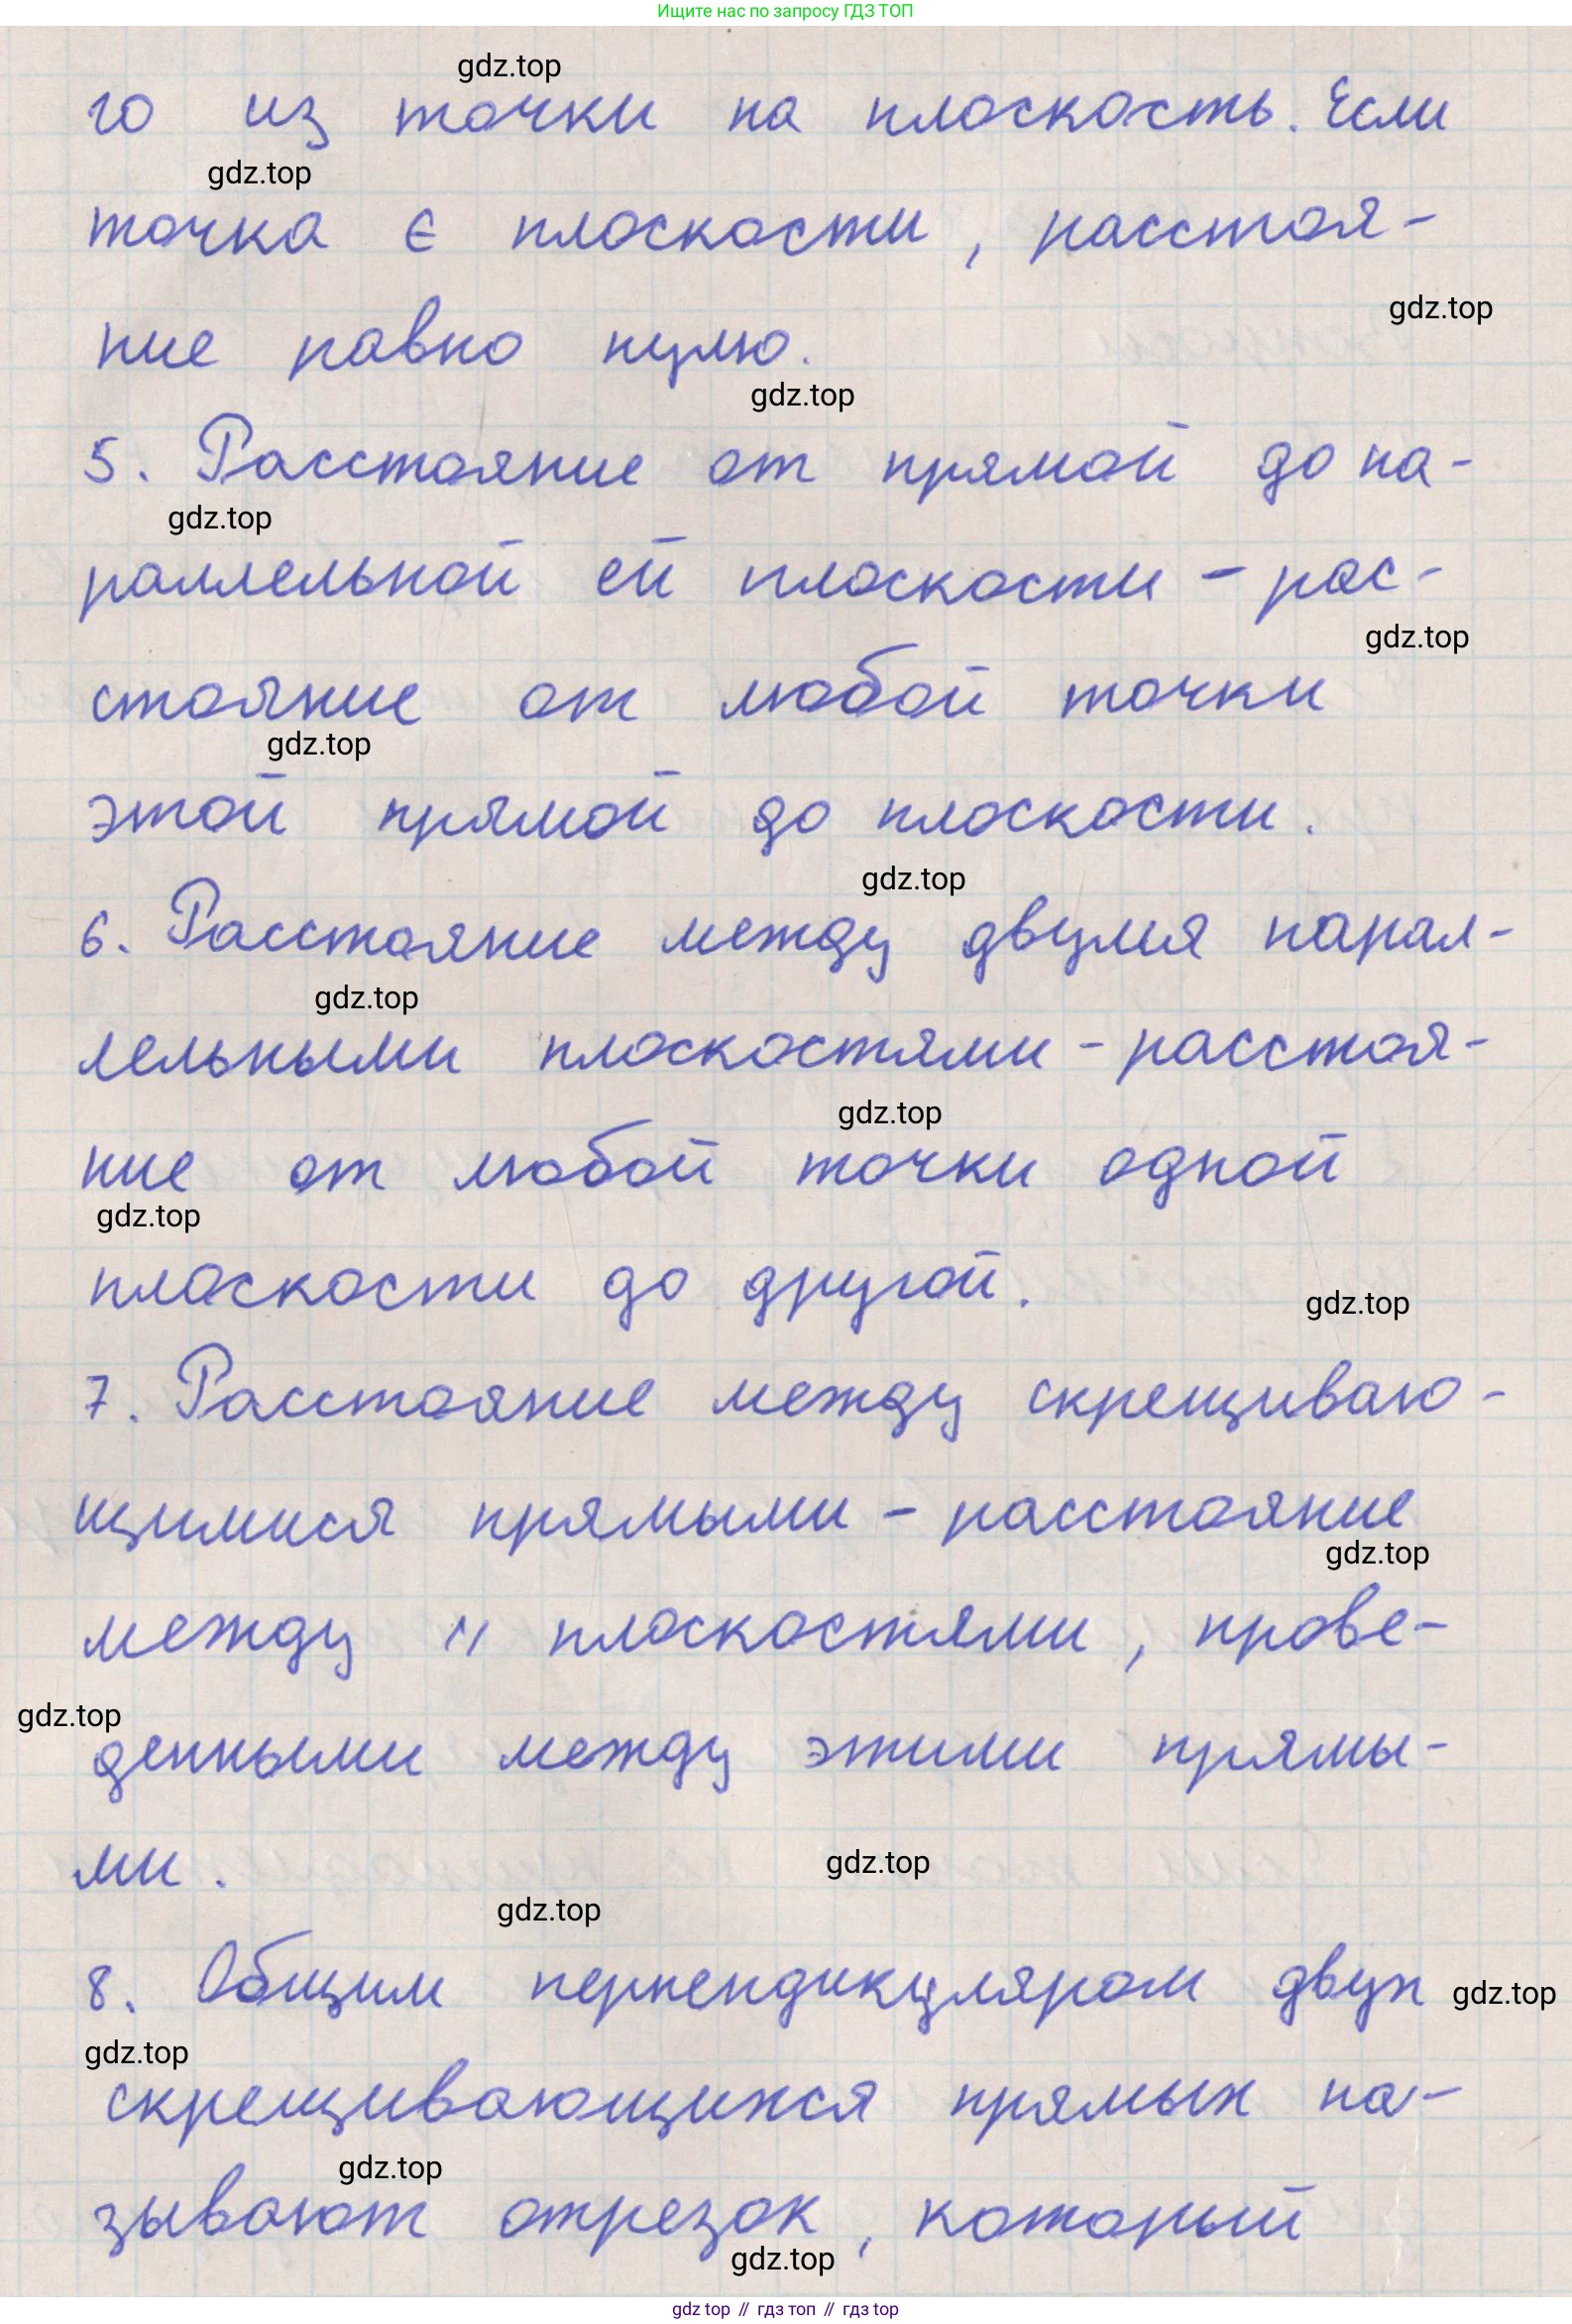 Ищите нас по запросу ГДЗ ТОП
gdz.top
го из точки на плоскость. Если
gdz.top
точка ∈ плоскости, расстоя-
gdz.top
ние равно нулю.
gdz.top
5. Расстояние от прямой до па-
gdz.top
раллельной ей плоскости - рас-
gdz.top
стояние от любой точки
gdz.top
этой прямой до плоскости.
gdz.top
6. Расстояние между двумя парал-
gdz.top
лельными плоскостями - расстоя-
gdz.top
ние от любой точки одной
gdz.top
плоскости до другой.
gdz.top
7. Расстояние между скрещиваю-
щимися прямыми - расстояние
gdz.top
между || плоскостями, прове-
gdz.top
денными между этими прямы-
ми.
gdz.top
gdz.top
8. Общим перпендикуляром двух
gdz.top
gdz.top
скрещивающихся прямых на-
gdz.top
зывают отрезок, который
gdz.top
gdz top // гдз топ // гдз top